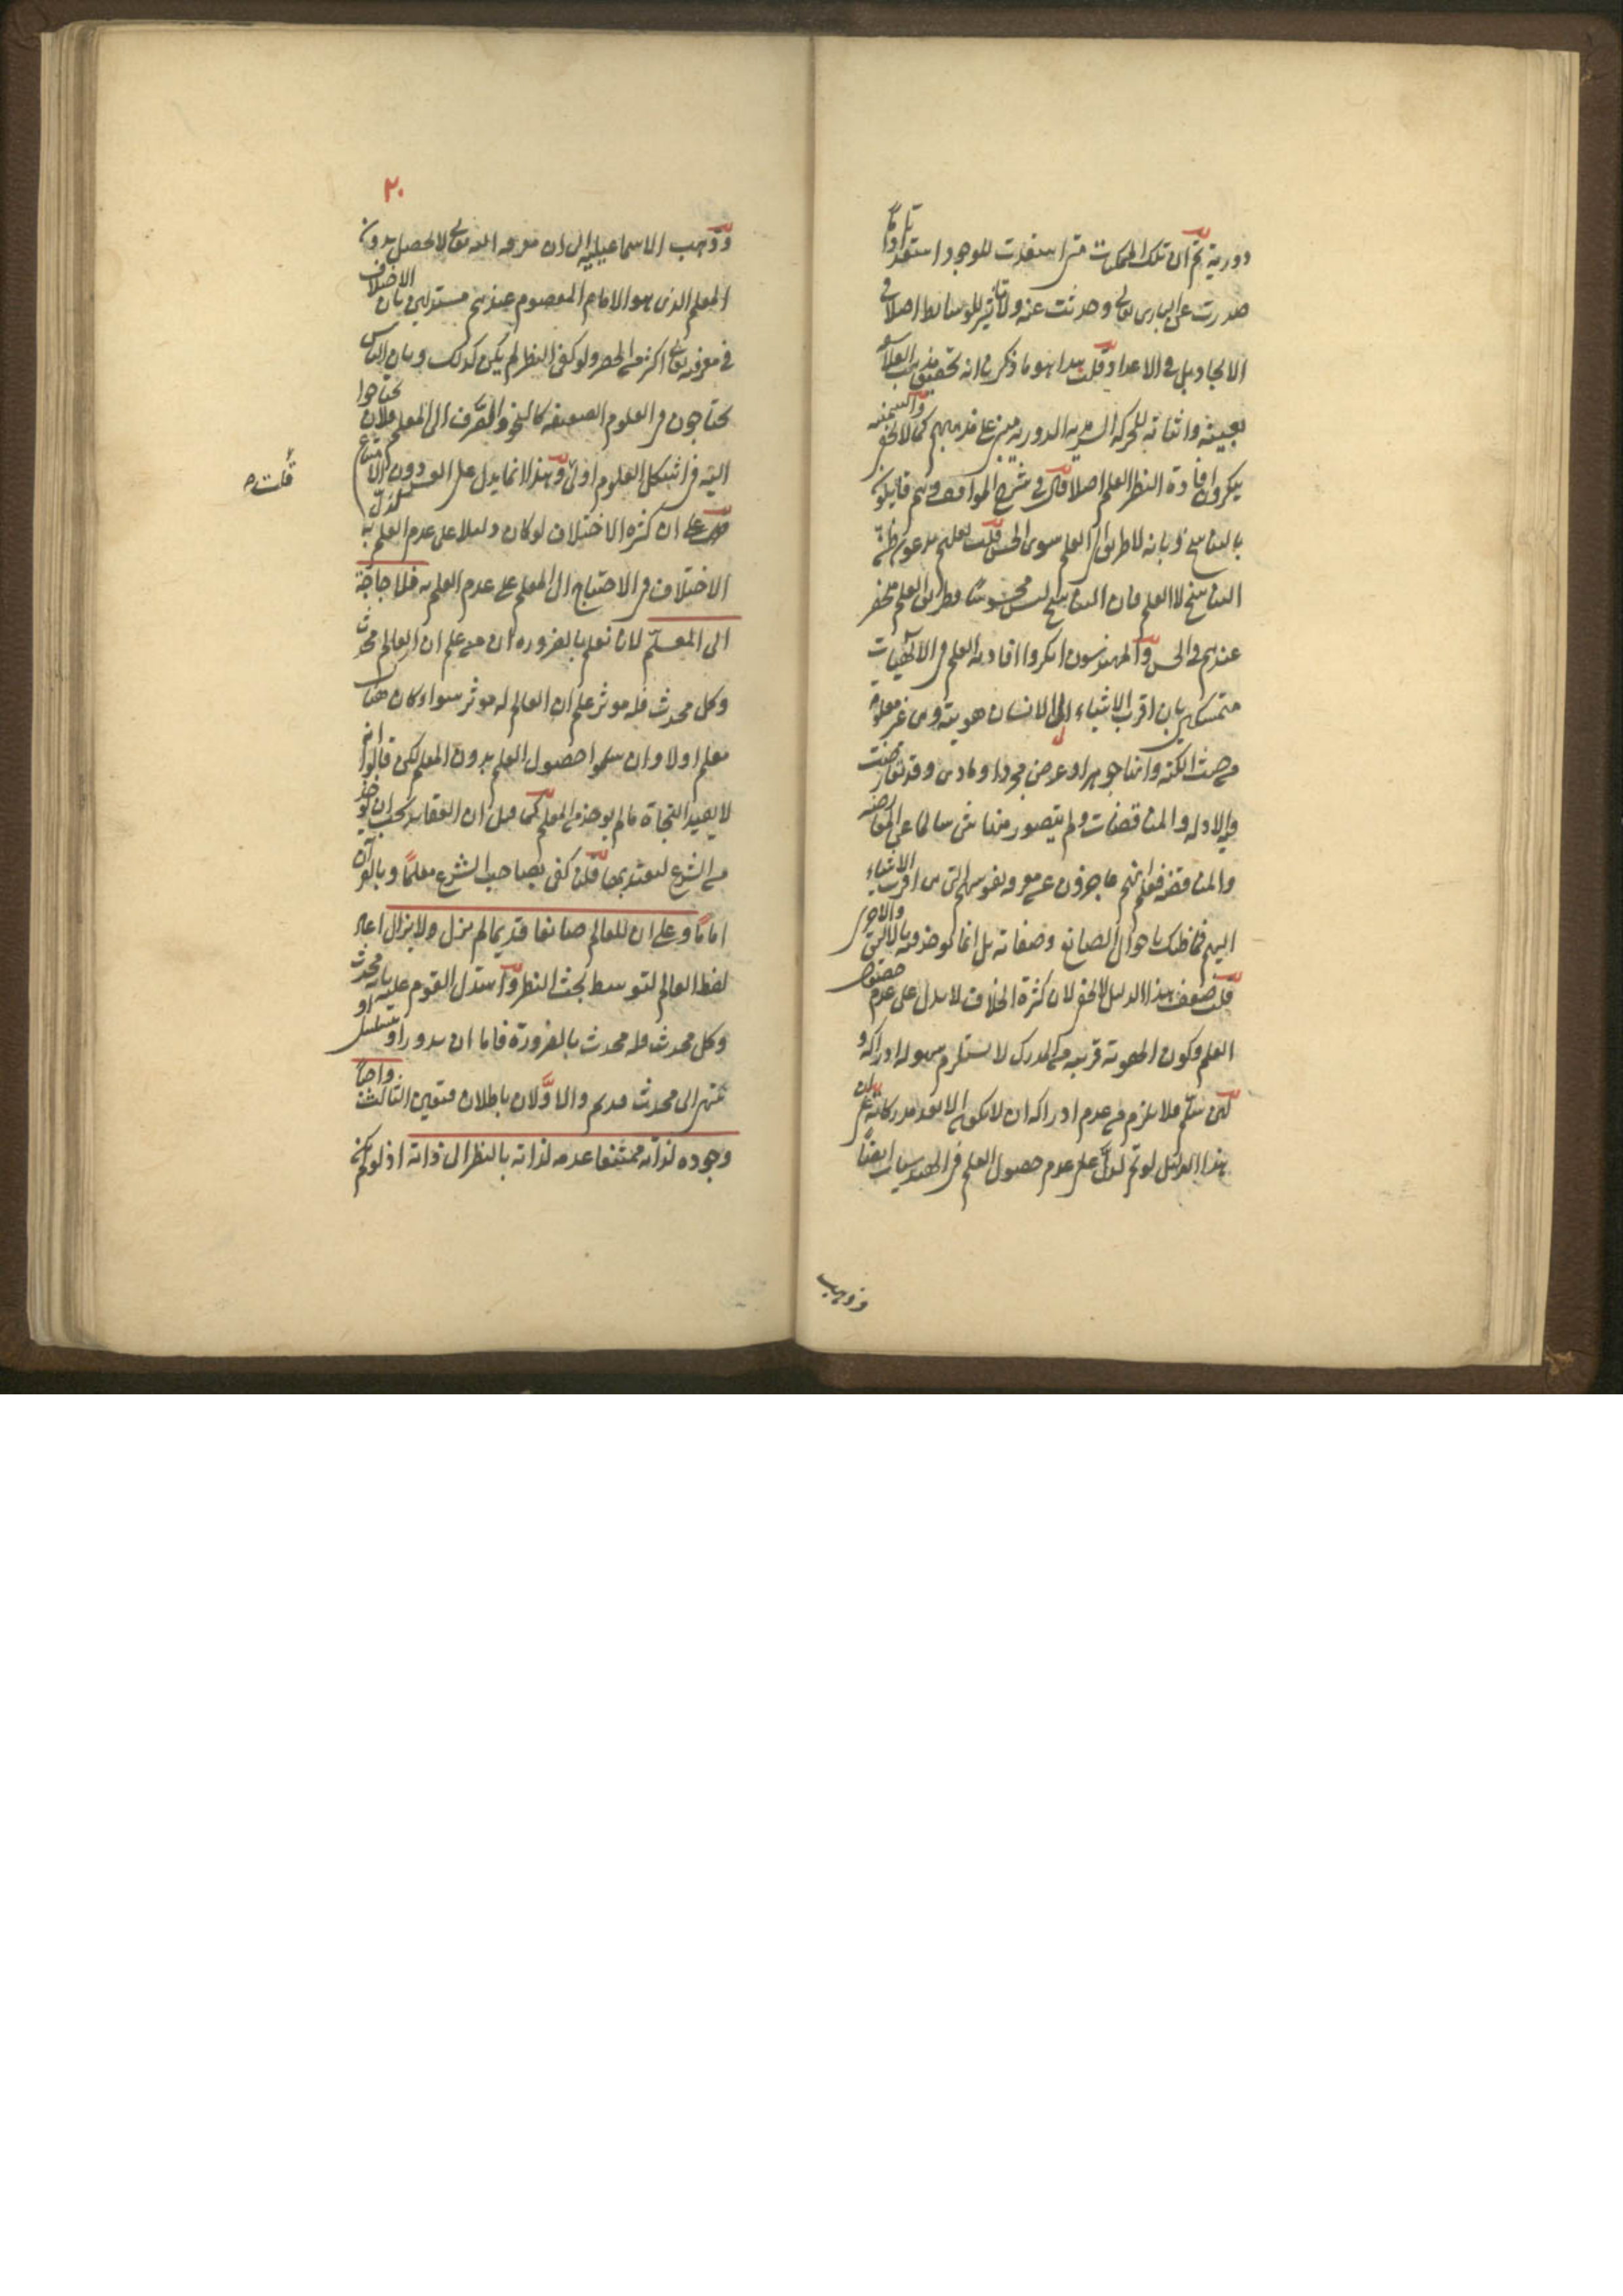 دورية ثم ان تلك الممكنات متى استعدت للوجود استعدادا تاما
صدرت عن الباري تعالى وحدثت عنه ولا تاثير للوسائط اصلا في
الايجاد بل في الاعداد قلت هذا هو ما ذكرنا انه تحقيق مذهب الفلاسفة
بعينه واثباته للحركة السرمدية الدورية مبني على مذهبهم كما لا يخفى والسمنية
ينكرون افادة النظر العلم اصلا قال في شرح المواقف وهم قايلون
بالتناسخ وبانه لا طريق الى العلم سوى الحس قلت لعلهم يدعون ظن
التناسخ لا العلم فان التناسخ ليس محسوسا وطريق العلم منحصر
عندهم في الحس والمهندسون انكروا افادته العلم في الالهيات
متمسكين بان اقرب الاشياء الى الانسان هويته وهي غير معلومة
من حيث الكنه وانها جوهر او عرض مجرد او مادي وقد تعارضت
الادلة والمناقضات ولم يتصور منها شيء سالما عن المعارضة
والمناقضة فعلم انهم عاجزون عن معرفة نفوسهم التي هي اقرب الاشياء
اليهم فما ظنك باحوال الصانع وصفاته بل انما يوخذ فيه بالاليق والاحرى
قلت ضعف هذا الدليل لا يخفى لان كثرة الخلاف لا يدل على عدم حصول
العلم وكون الهوية قريبة من المدرك لا يستلزم سهولة ادراكه و
لئن سلم فلا يلزم من عدم ادراكه ان لا يكون الابعد مدركا
هذا الدليل لو تم لدل على عدم حصول العلم في الهندسيات ايضا
وذهب
٢٠
وذهب الاسماعيلية الى ان معرفة الله تعالى لا يحصل بدون
المعلم الذي هو الامام المعصوم عندهم مستدلين بان الاختلاف
في معرفته تعالى اكثر من الحصر ولو كفى النظر لم يكن كذلك وبان الناس
يحتاجون في العلوم الضعيفة كالنحو والصرف الى المعلم فلان يحتاجوا
اليه في اشكل العلوم اولى وهذا انما يدل على العسر دون الامتناع
على ان كثرة الاختلاف لو كان دليلا على عدم العلم به لدل
الاختلاف في الاحتياج الى المعلم على عدم العلم به فلا حاجة
الى المعلم لانا نعلم بالضرورة ان من علم ان العالم محدث
وكل محدث فله موثر علم ان العالم له موثر سواء كان هناك
معلم او لا وان سلموا حصول العلم بدون المعلم لكن قالوا انه
لا يفيد النجاة ما لم يوخذ من المعلم كما قيل ان العقايد يجب ان يوخذ
من الشرع ليعتد بها قلنا كفى بصاحب الشرع معلما وبالقران
اماما وعلى ان للعالم صانعا قديما لم يزل ولا يزال اعاد
لفظ العالم لتوسط بحث النظر واستدل القوم عليه بانه محدث
وكل محدث فله محدث بالضرورة فاما ان يدور او يتسلسل او
ينتهي الى محدث قديم والاولان باطلان فتعين الثالث واجبا
وجوده لذاته ممتنعا عدمه لذاته بالنظر الى ذاته اذ لو لم يكن
قلت